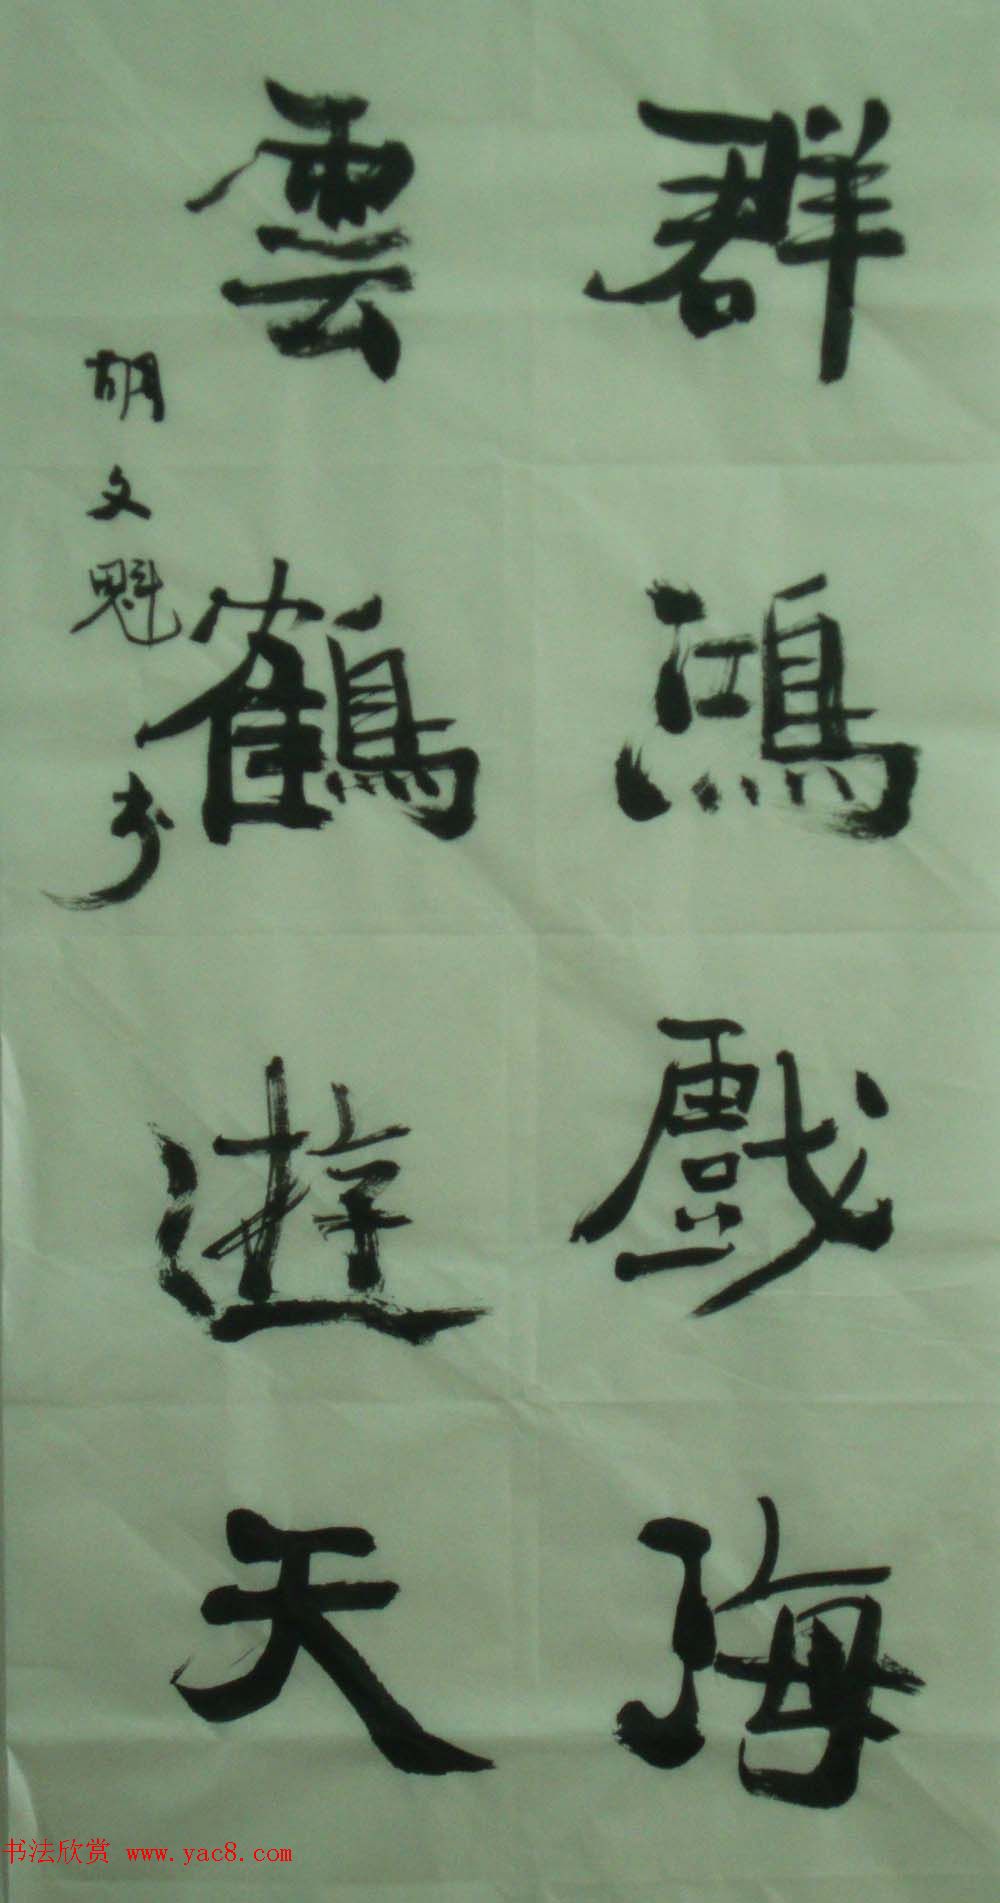 群鴻戲海
雲鶴遊天
胡文魁书
书法欣赏 www.yac8.com